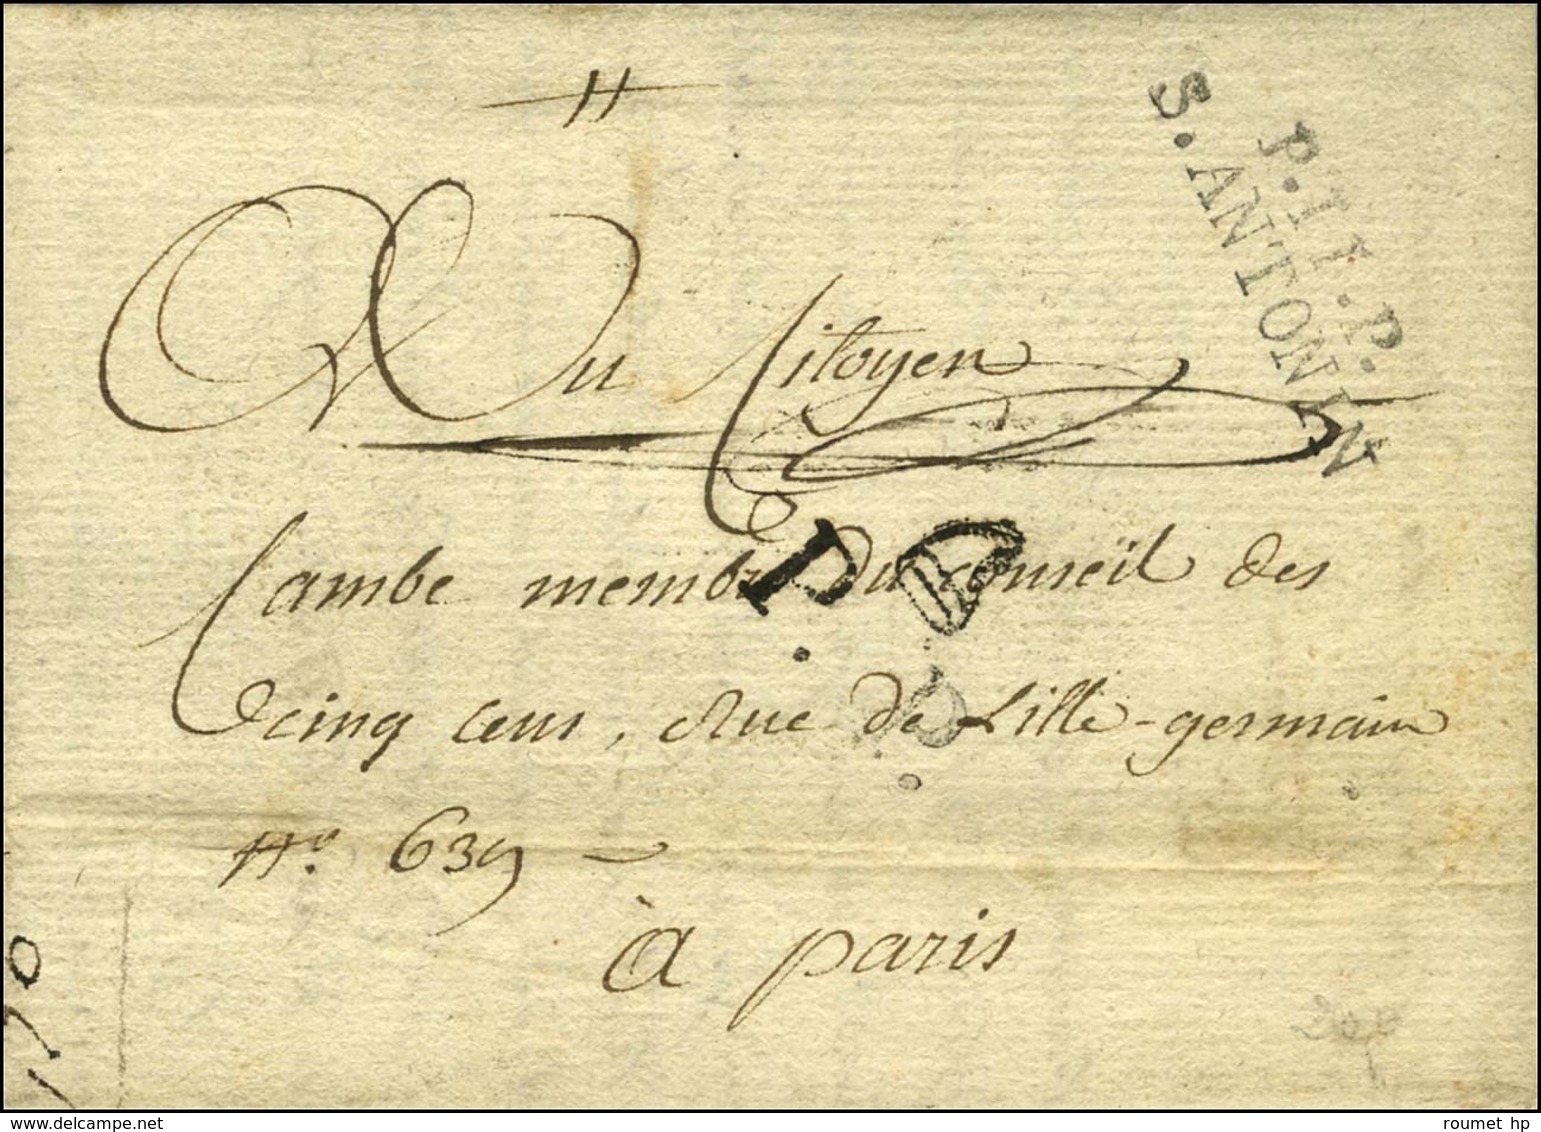 P.11.P.
S.ANTONIN
Au Citoyen
Cambe membre du conseil des
cinq cens, Rue de Lille-germain
N.º 639
à paris
P.
P.
130
roumet hp
www.delcampe.net